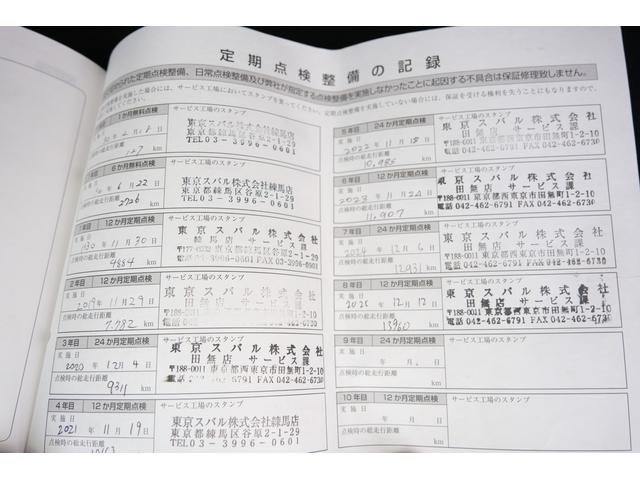 定期点検整備の記録
定期点検整備、日常点検整備及び弊社が指定する点検整備を実施しなかったことに起因する不具合は保証修理致しません。
を実施した場合には、サービス工場においてスタンプを
定期点検整備を実施していない場合には、保証を受ける権利を失うことにもなりますので、
1か月無料点検
サービス工場のスタンプ
月 18 日
127 km
東京スバル株式会社練馬店
東京都練馬区谷原2-1-29
TEL03-3996-0601
6か月無料点検
サービス工場のスタンプ
年 6 月 22 日
点検時の総走行距離
2726 km
東京スバル株式会社練馬店
東京都練馬区谷原2-1-29
TEL03-3996-0601
1年目 12か月定期点検
サービス工場のスタンプ
実施日
年 11 月 30 日
点検時の総走行距離
4884 km
東京スバル株式会社
練馬店 サービス課
2年目 24か月定期点検
サービス工場のスタンプ
実施日
2019 年 11 月 29 日
点検時の総走行距離
7,782 km
東京スバル株式会社
田無店 サービス課
〒188-0011 東京都西東京市田無町1-2-10
電話 042-462-6791 FAX 042-462-6730
3年目 24か月定期点検
サービス工場のスタンプ
実施日
2020 年 12 月 4 日
点検時の総走行距離
9311 km
東京スバル株式会社
田無店 サービス課
〒188-0011 東京都西東京市田無町1-2-10
電話 042-462-6791 FAX 042-462-6730
4年目 12か月定期点検
サービス工場のスタンプ
実施日
2021 年 11 月 19 日
点検時の総走行距離
東京スバル株式会社練馬店
東京都練馬区谷原2-1-29
TEL03-3996-0601
5年目 24か月定期点検
サービス工場のスタンプ
実施日
2022 年 11 月 18 日
点検時の総走行距離
10,985 km
東京スバル株式会社
田無店 サービス課
〒188-0011 東京都西東京市田無町1-2-10
電話 042-462-6791 FAX 042-462-6730
6年目 12か月定期点検
サービス工場のスタンプ
実施日
2023 年 11 月 24 日
点検時の総走行距離
11,907 km
東京スバル株式会社
田無店 サービス課
〒188-0011 東京都西東京市田無町1-2-10
電話 042-462-6791 FAX 042-462-6730
7年目 24か月定期点検
サービス工場のスタンプ
実施日
2024 年 12 月 6 日
点検時の総走行距離
12931 km
東京スバル株式会社
田無店 サービス課
〒188-0011 東京都西東京市田無町1-2-10
電話 042-462-6791 FAX 042-462-6730
8年目 12か月定期点検
サービス工場のスタンプ
実施日
2025 年 12 月 12 日
点検時の総走行距離
13960 km
東京スバル株式会社
田無店 サービス課
〒188-0011 東京都西東京市田無町1-2-10
電話 042-462-6791 FAX 042-462-6730
9年目 24か月定期点検
サービス工場のスタンプ
実施日
年 月 日
点検時の総走行距離
km
10年目 12か月定期点検
サービス工場のスタンプ
実施日
年 月 日
点検時の総走行距離
km